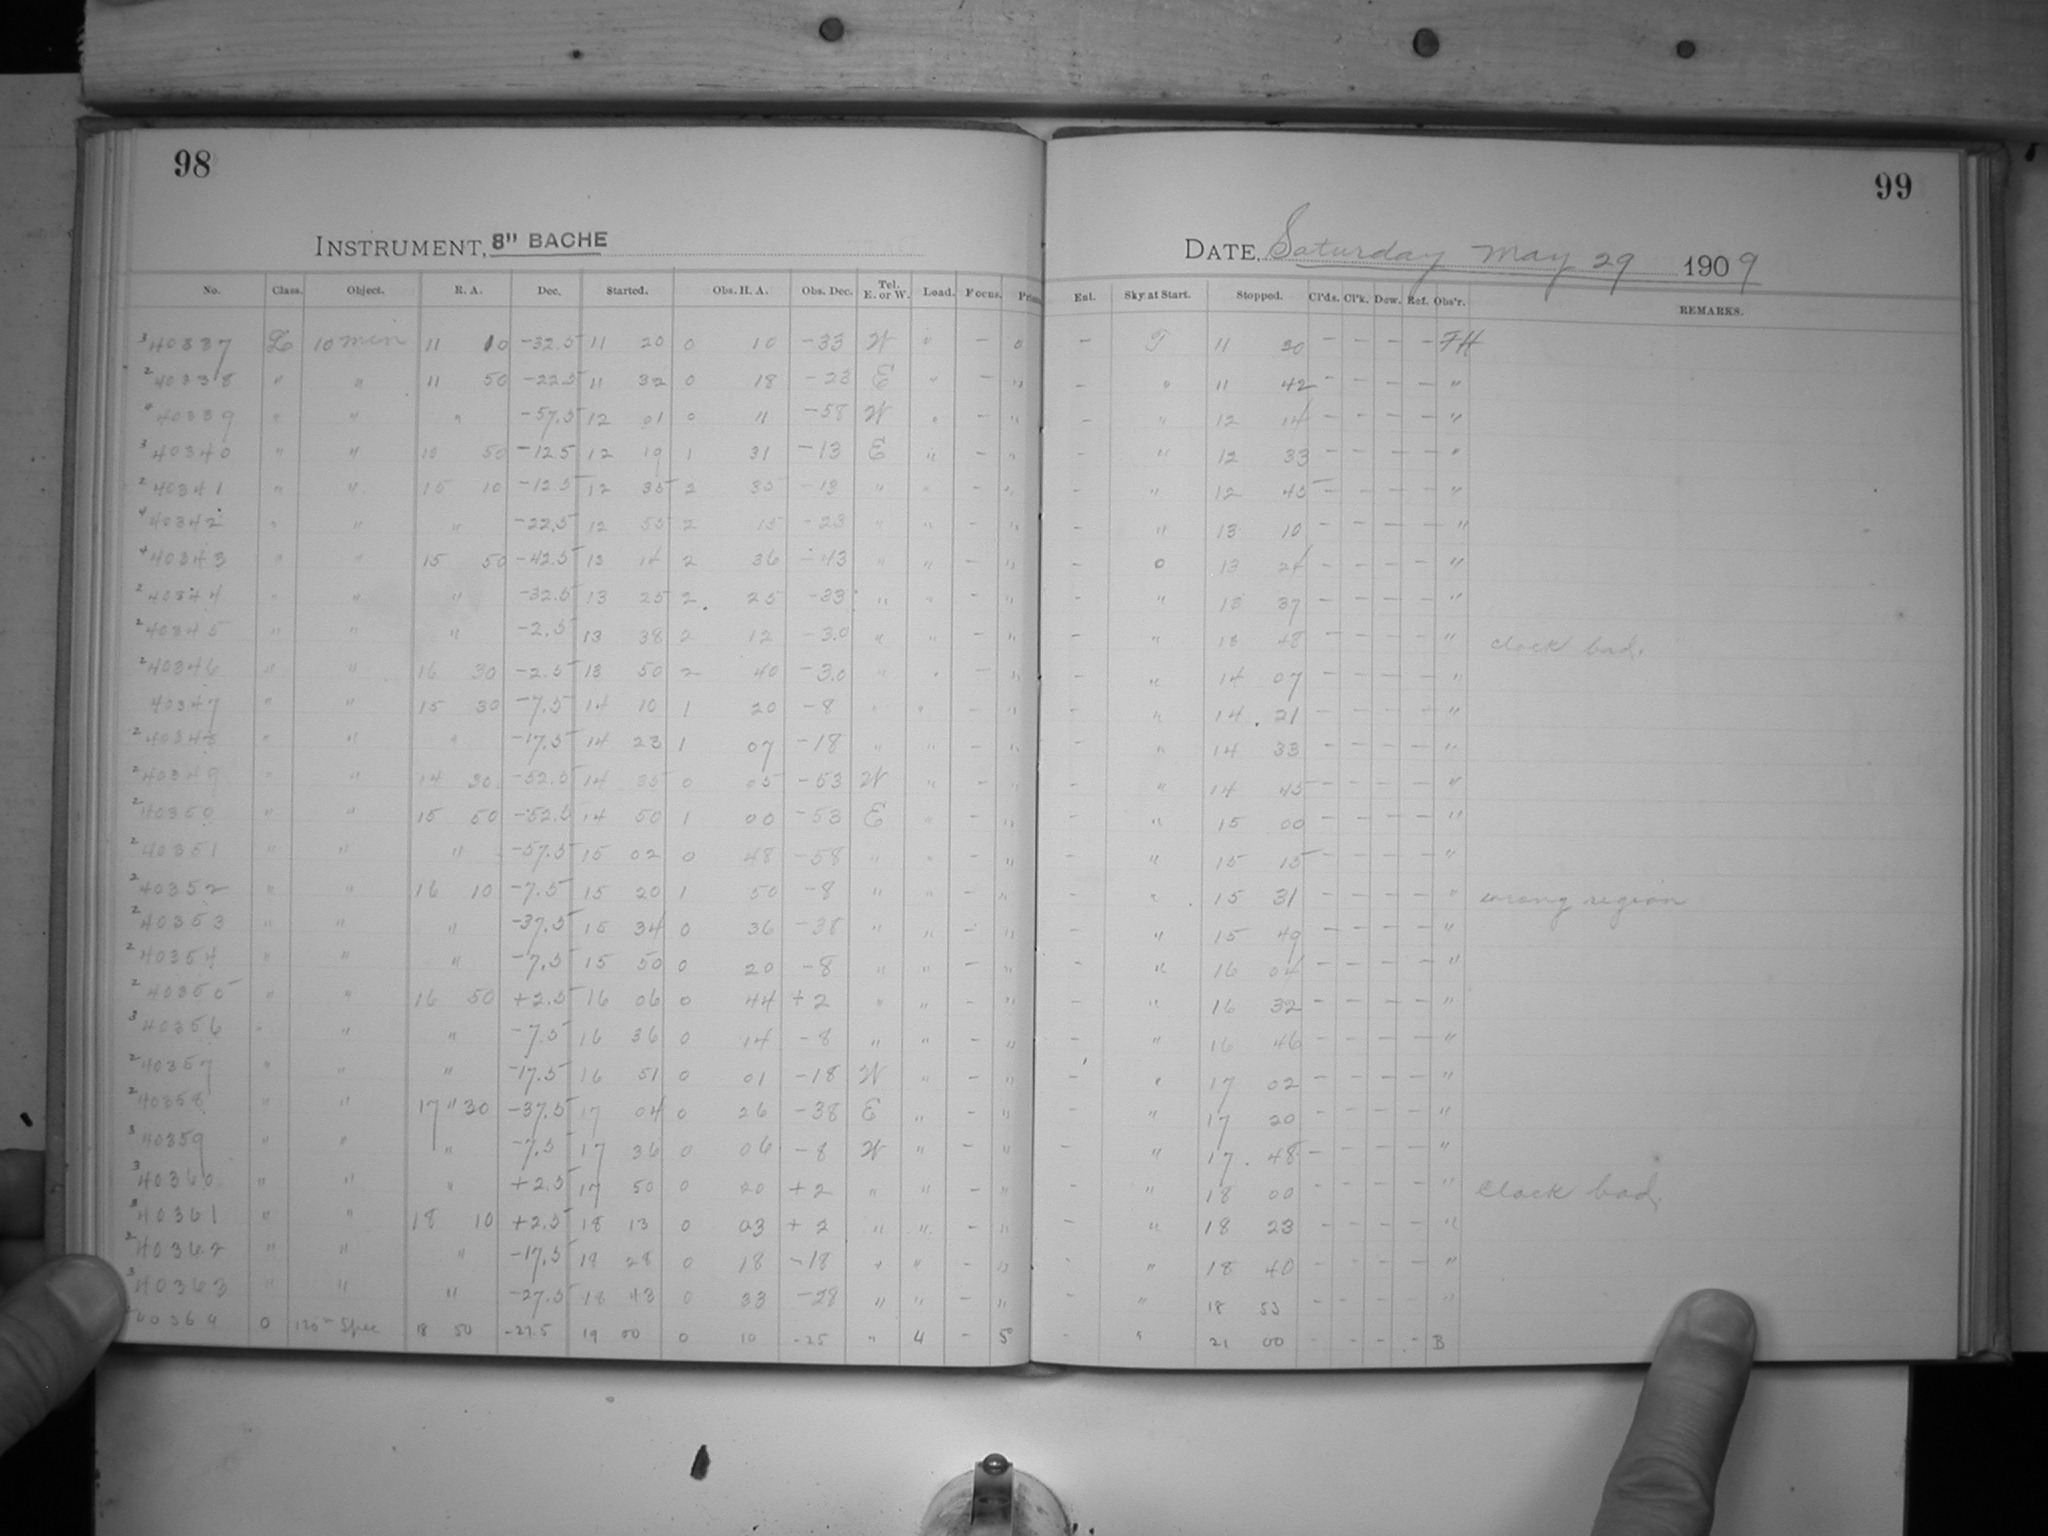 98
99
INSTRUMENT, 8" BACHE
DATE, Saturday May 29 1909
No. Class. Object. R. A. Dec. Started. Obs. H. A. Obs. Dec. Tel. E. or W. Load. Focus. Ent. Sky at Start. Stopped. Cl'ds. Cl'k. Dew. Ref. Obs'r. REMARKS.
3 40337 L 10 min 11 10 -32.5 11 20 0 10 -33 W " - 0 - 11 30 - - - - FH
2 40338 " " 11 50 -22.5 11 32 0 18 -23 E " - " - " 11 42 - - - - "
4 40339 " " " -57.5 12 01 0 11 -58 W " - " - " 12 14 - - - - "
3 40340 " " 50 -12.5 12 19 1 31 -13 E " - " - " 12 33 - - - - "
2 40341 " " 15 10 -12.5 12 35 2 35 -13 " " - " - " 12 45 - - - - "
4 40342 " " " -22.5 12 55 2 15 -23 " " - " - " 13 10 - - - - "
4 40343 " " 15 50 -42.5 13 14 2 36 -43 " " - " - 0 13 24 - - - - "
2 40344 " " " -32.5 13 25 2 25 -33 " " - " - " 13 37 - - - - "
2 40345 " " " -2.5 13 38 2 12 -3.0 " " - " - " 13 48 - - - - " clock bad.
2 40346 " " 16 30 -2.5 13 50 2 40 -3.0 " " - " - " 14 07 - - - - "
40347 " " 15 30 -7.5 14 10 1 20 -8 " " - " - " 14 21 - - - - "
2 40348 " " " -17.5 14 23 1 07 -18 " " - " - " 14 33 - - - - "
2 40349 " " 14 30 -52.5 14 35 0 05 -53 W " - " - " 14 45 - - - - "
2 40350 " " 15 50 -52.5 14 50 1 00 -53 E " - " - " 15 00 - - - - "
2 40351 " " " -57.5 15 02 0 48 -58 " " - " - " 15 15 - - - - "
2 40352 " " 16 10 -7.5 15 20 1 50 -8 " " - " - " 15 31 - - - - " wrong region
2 40353 " " " -37.5 15 34 0 36 -38 " " - " - " 15 49 - - - - "
2 40354 " " " -7.5 15 50 0 20 -8 " " - " - " 16 04 - - - - "
2 40355 " " 16 50 +2.5 16 06 0 44 +2 " " - " - " 16 32 - - - - "
3 40356 " " " -7.5 16 36 0 14 -8 " " - " - " 16 46 - - - - "
2 40357 " " " -17.5 16 51 0 01 -18 W " - " - " 17 02 - - - - "
2 40358 " " 17 " 30 -37.5 17 04 0 26 -38 E " - " - " 17 20 - - - - "
3 40359 " " " -7.5 17 36 0 06 -8 W " - " - " 17 48 - - - - "
3 40360 " " " +2.5 17 50 0 20 +2 " " - " - " 18 00 - - - - " Clock bad.
3 40361 " " 18 10 +2.5 18 13 0 03 +2 " " - " - " 18 23 - - - - "
2 40362 " " " -17.5 18 28 0 18 -18 " " - " - " 18 40 - - - - "
3 40363 " " " -27.5 18 43 0 33 -28 " " - " - " 18 53 - - - - "
40364 0 120m Spec 18 50 -27.5 19 00 0 10 -25 " 4 - 5 - " 21 00 - - - - B